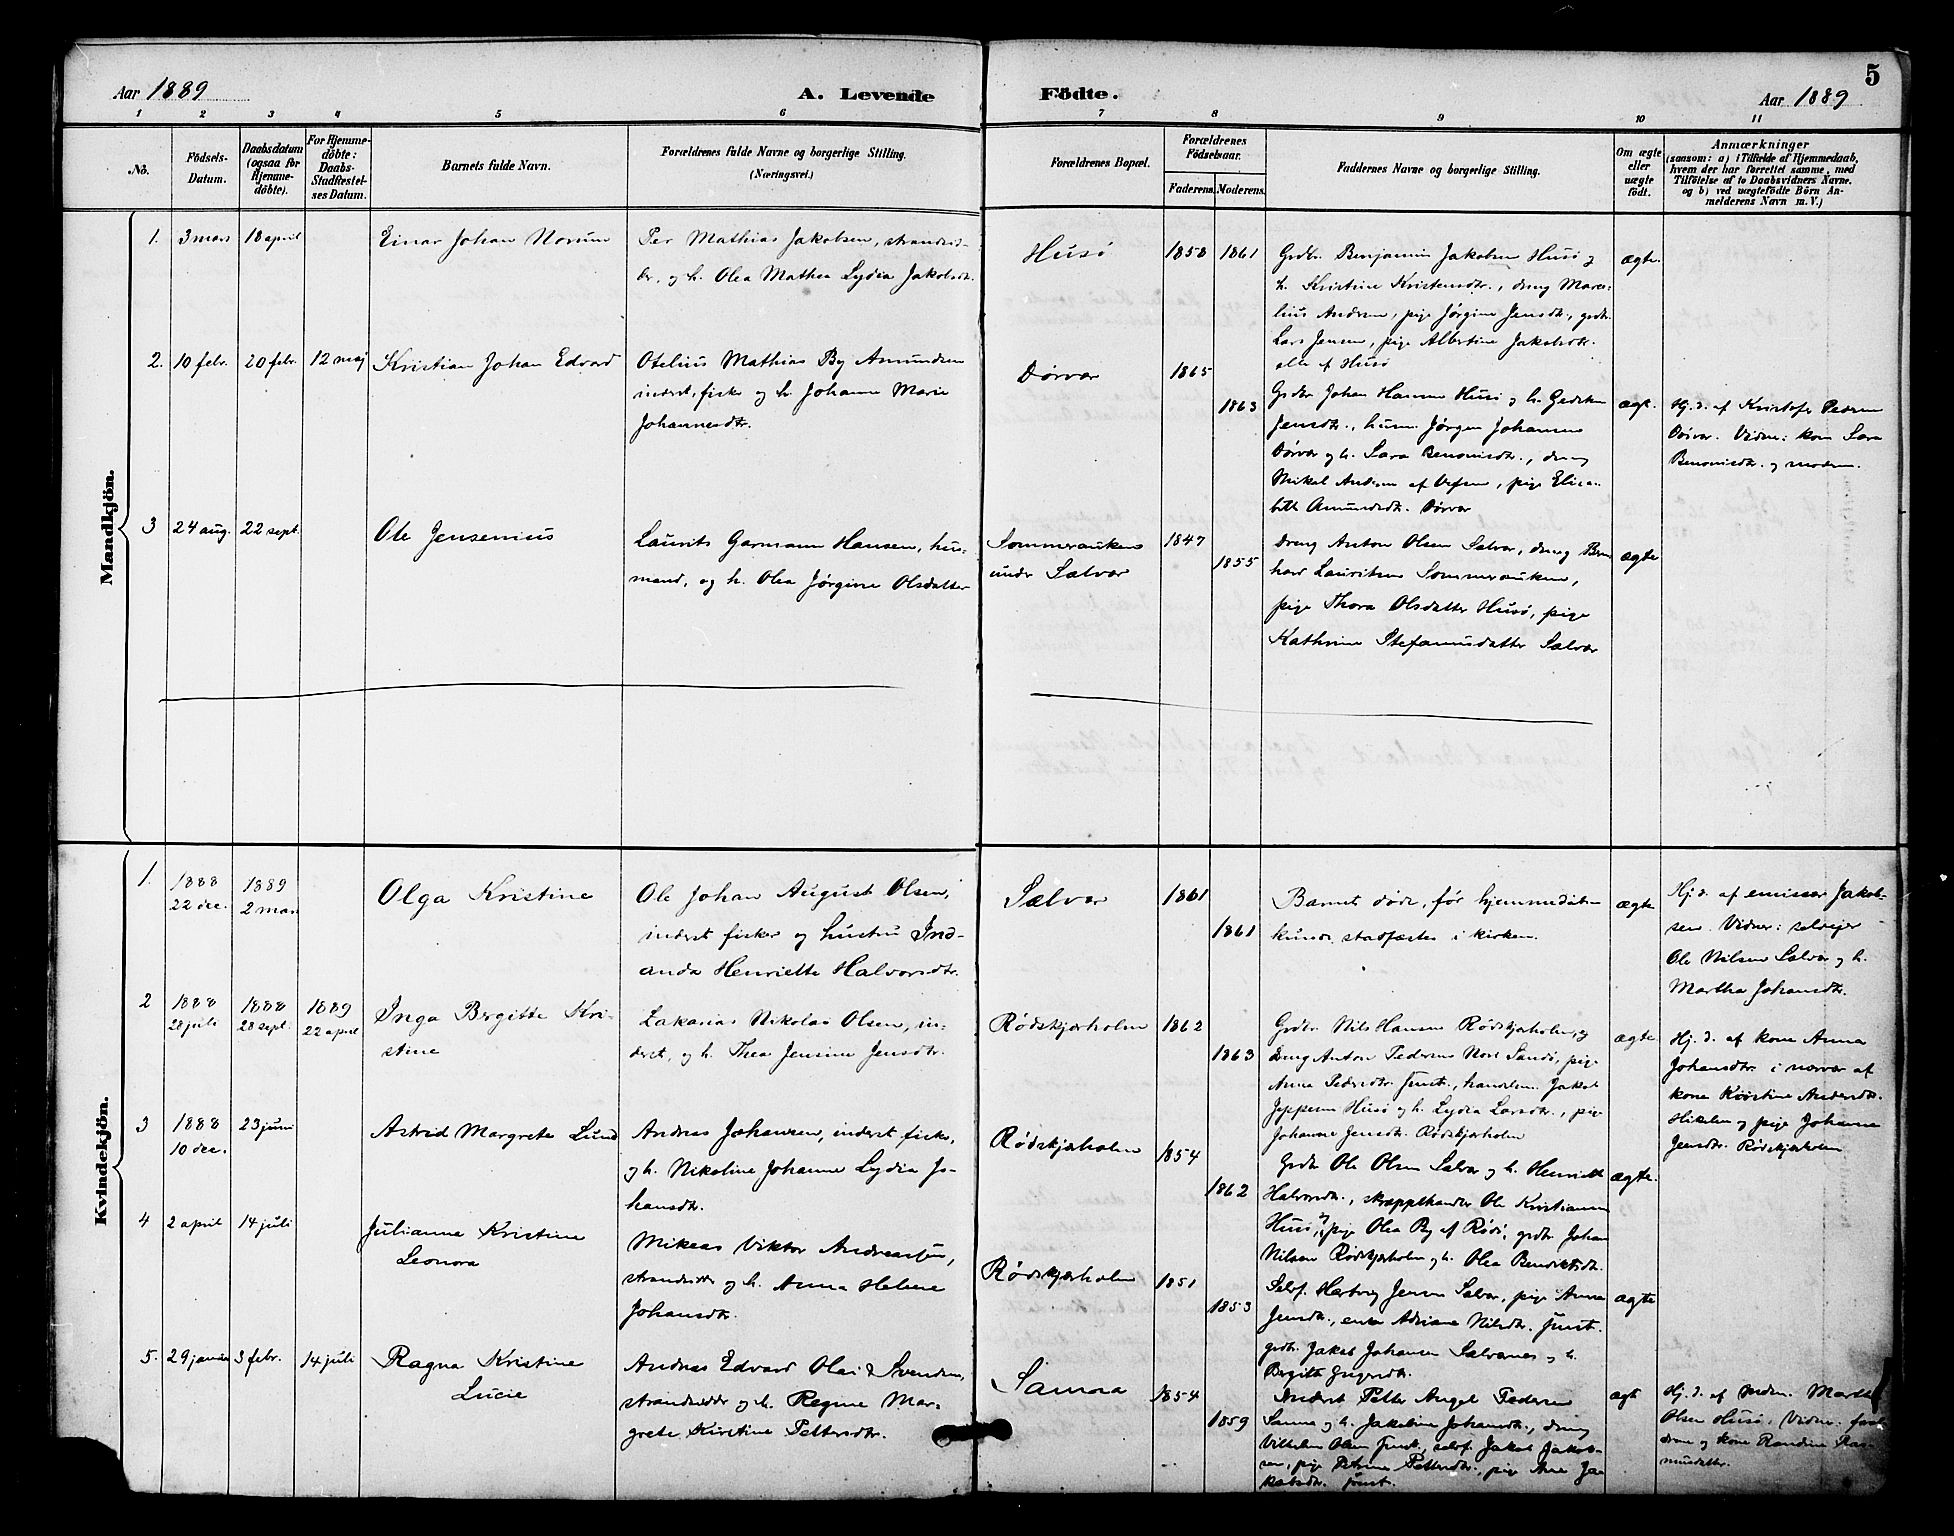 Aar 1889
A. Levende
Födte.
Aar 1889
5
1 2 3 4 5 6 7 8 9 10 11
No.
Födsels-
Datum.
Daabsdatum
(ogsaa for
Hjemme-
döbte).
For Hjemme-
döbte:
Daabs-
Stadfæstel-
ses Datum.
Barnets fulde Navn.
Forældrenes fulde Navne og borgerlige Stilling.
(Næringsvei.)
Forældrenes Bopæl.
Forældrenes
Födselsaar.
Faderens. Moderens.
Faddernes Navne og borgerlige Stilling.
Om ægte
eller
uægte
födt.
Anmærkninger
(saasom: a) i Tilfælde af Hjemmedaab,
hvem der har forrettet samme, med
Tilföielse af to Daabsvidners Navne,
og b) ved uægtefödte Börn An-
melderens Navn m. V.)
Mandkjön.
1. 3 mars 18 april
Einar Johan Norum
Per Mathias Jakobsen, strandsid-
der, og h. Olea Mathea Lydia Jakobsdtr.
Husö
1858 1861
Grdbr. Benjamin Jakobsen Husö og
h. Kristine Kristensdtr., dreng Marse-
lius Andersen, pige Jörgine Jensdtr., grdbr.
Lars Jensen, pige Albertine Jakobsdtr.
alle af Husö
ægte.
2. 10 febr. 20 febr. 12 maj
Kristian Johan Edvard
Otelius Mathias By Amundsen
inderst, fisker og h. Johanna Marie
Johannesdtr.
Dörvær
1865
1863
Grdbr. Johan Hansen Husö og h. Gedske
Jensdtr., husm. Jörgen Johansen
Dörvær og h. Sara Benonisdtr., dreng
Mikal Andersen af Vefsen, pige Elisa-
beth Amundsdtr. Dörvær
ægt.
Hj. d. af Kristofer Pedersen
Dörvær. Vidner: kone Sara
Benonisdtr. og moderen.
3 24 aug. 22 sept.
Ole Jensenius
Laurits Garmann Hansen, hus-
mand, og h. Olea Jörgine Olsdatter
Sommeraukens
under Sælvær
1847
1855
Dreng Anton Olsen Sælvær, dreng Bern
hard Lauritsen Sommerauken,
pige Thora Olsdatter Husö, pige
Kathrine Stefanusdatter Sælvær
ægte
Kvindekjön.
1. 1888
22 dec.
1889
2 mars
Olga Kristine
Ole Johan August Olsen,
inderst fisker og hustru Ind-
anda Henriette Halvorsdtr.
Sælvær
1861
1861
Barnet döde, för hjemmedaaben
kunde stadfæstes i kirken.
ægte
Hj. d. af emissær Jakob-
sen. Vidner: selvejer
Ole Nilsen Sælvær og h.
Martha Johansdtr.
2 1888
28 juli
1888
28 sept.
1889
22 april
Inga Bergitte Kri-
stine
Zakarias Nikolai Olsen, in-
derst, og h. Thea Jensine Jensdtr.
Rödskjærholm
1862
1863
Grdbr. Nils Hansen Rödskjærholm, og
dreng Anton Pedersen Nord Sandö, pige
Anna Pedersdtr. smst., handelsm. Jakob
Jeppesen Husö og h. Lydia Larsdtr., pige
Johanne Jensdtr. Rödskjærholm
ægte
Hj. d. af kone Anna
Johansdtr. i nærvær af
kone Kristine Andersdtr.
og pige Johanne
Jensdtr. Rödskjærholm
3 1888
10 dec.
23 juni
Astrid Margrete Lund
Andreas Johansen, inderst fisker,
og h. Nikoline Johanne Lydia Jo-
hansdtr.
Rödskjærholm
1854
1862
Grdbr. Ole Olsen Sælvær og h. Henriette
Halvorsdtr., skræpphandler Ole Kristiansen
Husö, pige Olea By af Rödö, grdbr. Johan
Nilsen Rödskjærholm og h. Olea Bendiktsdtr.
ægte.
4 2 april 14 juli
Julianne Kristine
Leonora
Mikeas Viktor Andreassen,
strandsidder og h. Anna Helene
Johansdtr.
Rödskjærholm
1851
1853
Selvf. Hartvig Jensen Sælvær, pige Anna
Jensdtr., enke Adriane Nilsdtr. smst.
grdbr. Jakob Johansen Sælvær og h.
Bergitte
ægte
5. 29 januar 3 febr. 14 juli
Ragna Kristine
Lucie
Andreas Edvard Olai Svendsen,
strandsidder og h. Regine Mar-
grete Kirstine Pettersdtr.
Sanna
1854
1859
Inderst Petter Angel Pedersen
Sanna og h. Jakobine Johansdtr., dreng
Vilhelm Olsen smst., selvf. Jakob Jakob-
sen, pige Petrine Pettersdtr., pige Ane Ja-
kobsdtr. smst.
ægt
Hj. d. af
Olsen Husö. Vidner:
og kone Randine Ras-
musdatter.